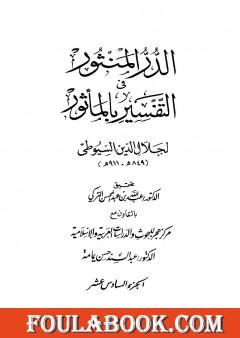 الدر المنثور
في
التفسير بالمأثور
لجلال الدين السيوطي
(٨٤٩هـ - ٩١١هـ)
تحقيق
الدكتور عبدالله بن عبدالمحسن التركي
بالتعاون مع
مركز هجر للبحوث والدراسات العربية والإسلامية
الدكتور عبدالسند حسن يمامة
الجزء السادس عشر
FOULABOOK.COM